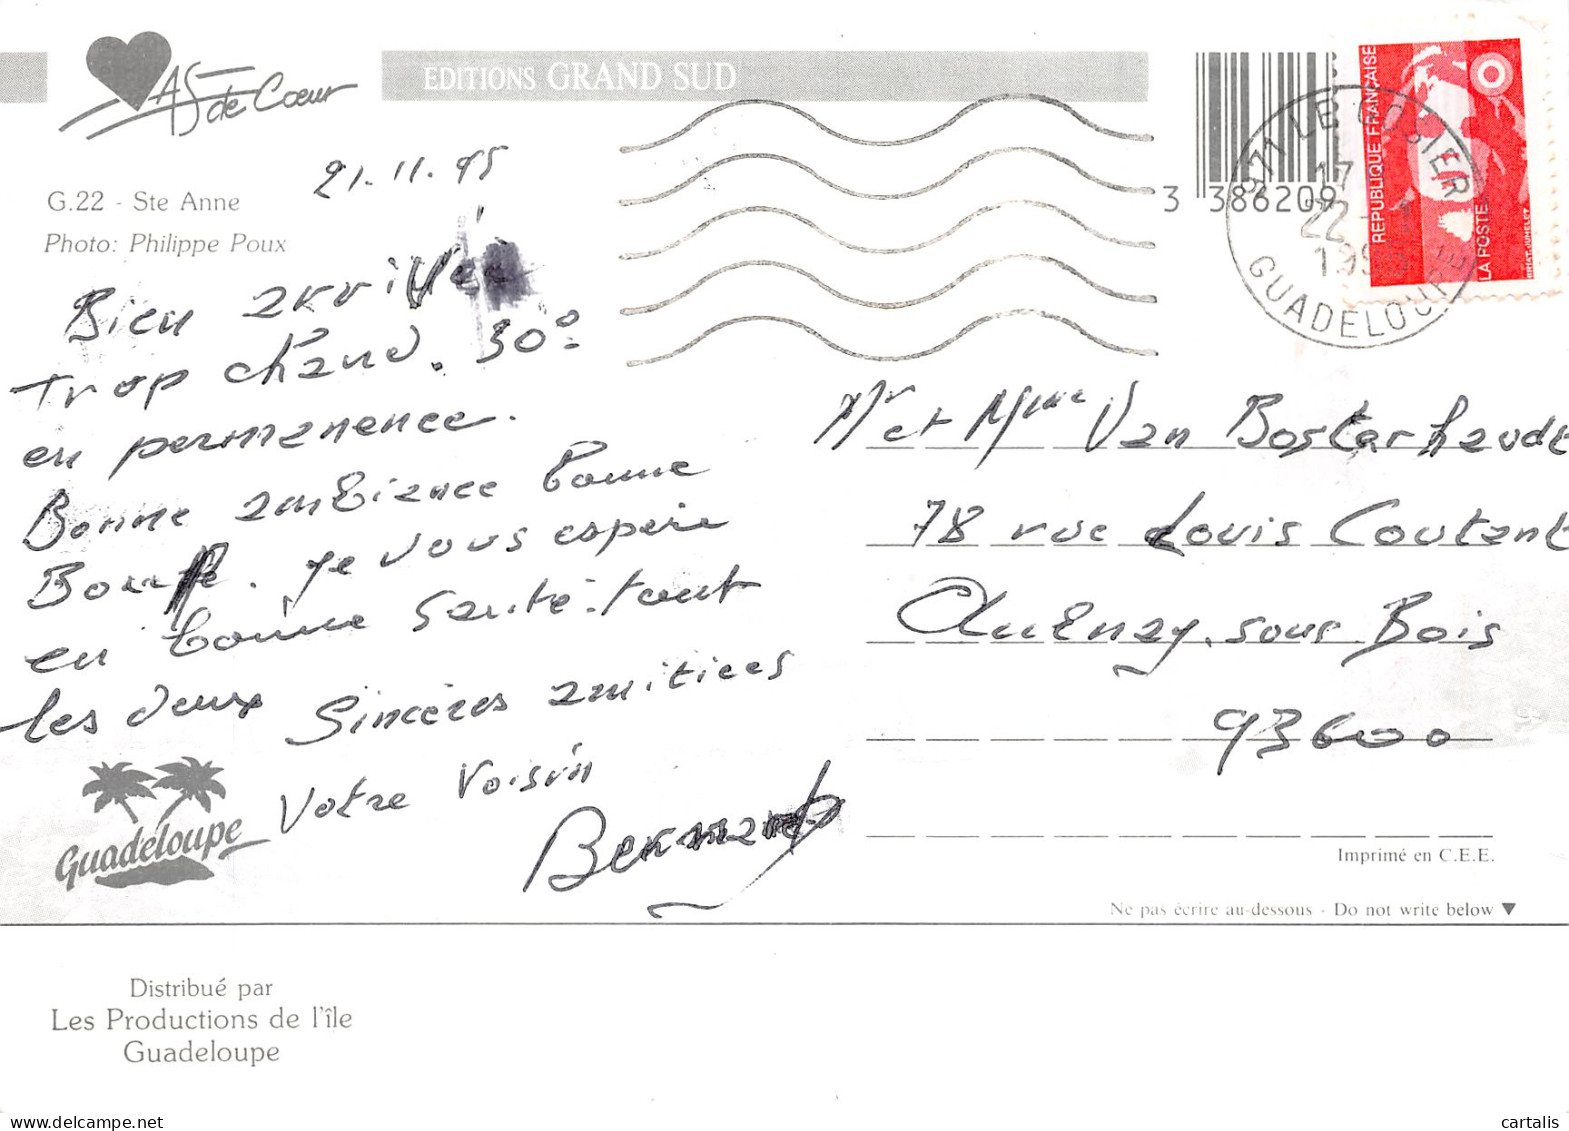 As de Cœur
EDITIONS GRAND SUD
21.11.95
G.22 - Ste Anne
Photo: Philippe Poux
Bien arrivée
trop chaud. 30°
en permanence.
Bonne ambience bonne
Bouffe. je vous espère
en bonne santé tout
les deux Sincères amitiees
Votre Voisin
Guadeloupe
3 386209
REPUBLIQUE FRANÇAISE
LA POSTE
971 LE GOSIER
17
22-11
1995
GUADELOUPE
Mr et Mme Van Bostarhaudt
78 rue Louis Coutant
Aulnay, sous Bois
93600
Imprimé en C.E.E.
Ne pas écrire au-dessous - Do not write below ▼
Distribué par
Les Productions de l'île
Guadeloupe
cartalis